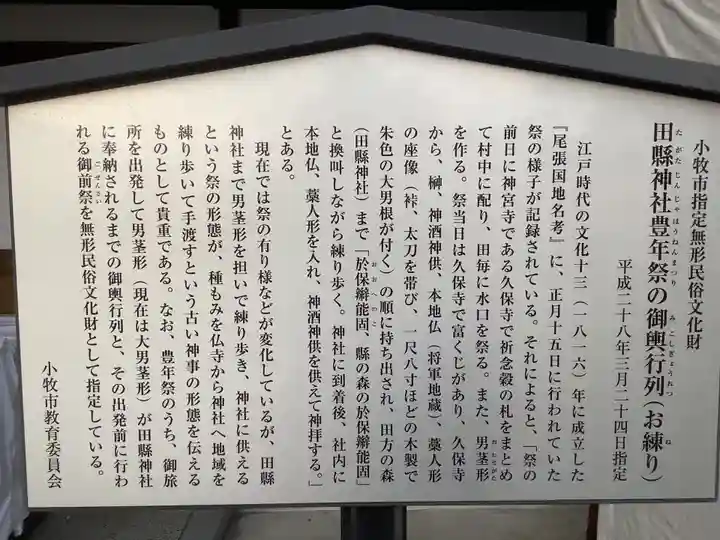 小牧市指定無形民俗文化財
たがたじんじゃほうねんまつり　みこしぎょうれつ　ね
田縣神社豊年祭の御輿行列(お練り)
平成二十八年三月二十四日指定
江戸時代の文化十三(一八一六)年に成立した
『尾張国地名考』に、正月十五日に行われていた
祭の様子が記録されている。それによると、「祭の
前日に神宮寺である久保寺で祈念穀の札をまとめ
て村中に配り、田毎に水口を祭る。また、男茎形
を作る。祭当日は久保寺で富くじがあり、久保寺
から、榊、神酒神供、本地仏(将軍地蔵)、藁人形
の座像(裃、太刀を帯び、一尺八寸ほどの木製で
朱色の大男根が付く)の順に持ち出され、田方の森
おおへのこ
(田縣神社)まで「於保辦能固、縣の森の於保辦能固」
と換叫しながら練り歩く。神社に到着後、社内に
本地仏、藁人形を入れ、神酒神供を供えて神拝する。」
とある。
現在では祭の有り様などが変化しているが、田縣
神社まで男茎形を担いで練り歩き、神社に供える
という祭の形態が、種もみを仏寺から神社へ地域を
練り歩いて手渡すという古い神事の形態を伝える
ものとして貴重である。なお、豊年祭のうち、御旅
所を出発して男茎形(現在は大男茎形)が田縣神社
に奉納されるまでの御輿行列と、その出発前に行わ
ごぜんさい
れる御前祭を無形民俗文化財として指定している。
小牧市教育委員会